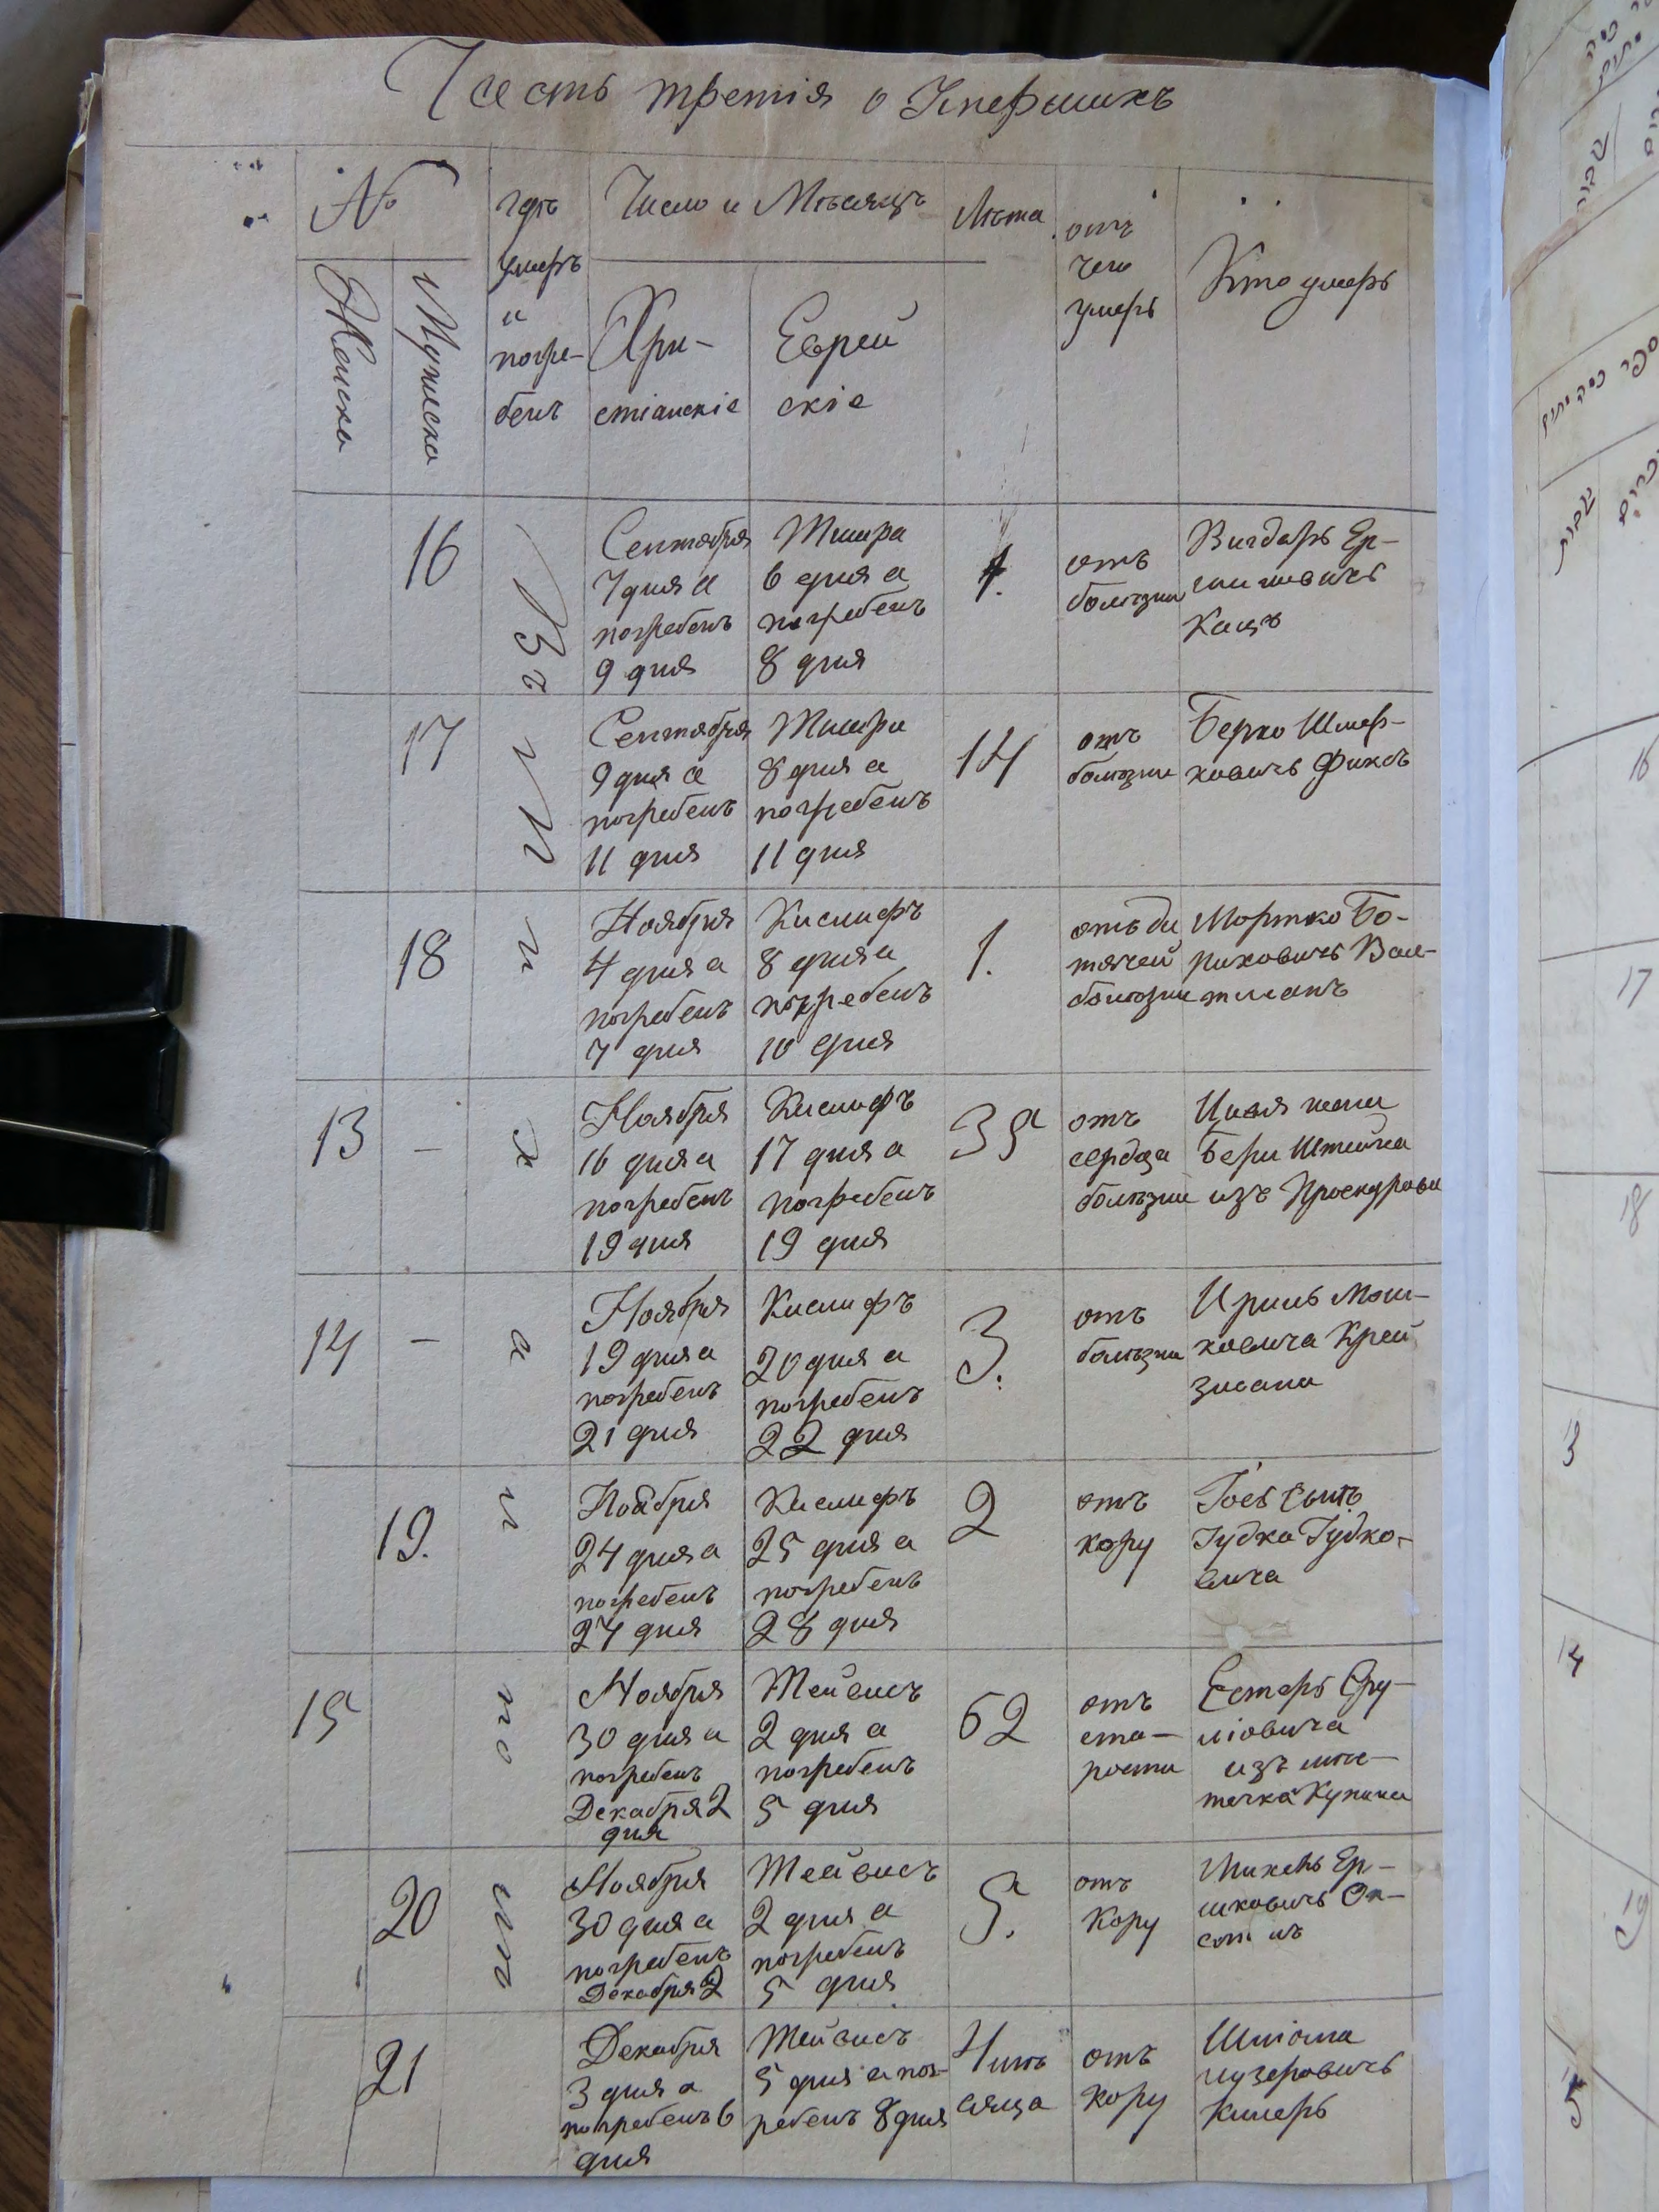 Часть третія о Умершихъ
№
где
умеръ
и
погре-
бенъ
Число и Мѣсяцъ
Лѣта
отъ
чего
умеръ
Кто умеръ
Женска
Мужеска
Хри-
стіанскіе
Еврей
скіе
16
Сентября
7 дня а
погребенъ
9 дня
Тишра
6 дня а
погребенъ
8 дня
1.
отъ
болезни
Вигдоръ Ер-
Кацъ
17
Сентября
9 дня а
погребенъ
11 дня
Тишри
8 дня а
погребенъ
11 дня
14
отъ
болезни
Берко Шмер-
ковичъ Фиксъ
18
Ноября
4 дня а
погребенъ
7 дня
Кислифъ
8 дня а
погребенъ
10 дня
1.
отъ ди
тячей
болезни
Мортко Бо-
руховичъ Вал-
тманъ
13
—
Ноября
16 дня а
погребенъ
19 дня
Кислифъ
17 дня а
погребенъ
19 дня
35
отъ
сердца
болезни
Цивя жена
Бери Штейна
изъ Проскурова
14
—
Ноября
19 дня а
погребенъ
21 дня
Кислифъ
20 дня а
погребенъ
22 дня
3.
отъ
болезни
Ирись Мош-
ковича Крей
змана
19.
Ноября
24 дня а
погребенъ
27 дня
Кислифъ
25 дня а
погребенъ
28 дня
2
отъ
кору
Іось сынъ
Іудка Іудко-
вича
15
Ноября
30 дня а
погребенъ
Декабря 2
дня
Тейвисъ
2 дня а
погребенъ
5 дня
62
отъ
ста-
рости
Естеръ Сру-
лiовича
изъ мѣс-
течка Купина
20
Ноября
30 дня а
погребенъ
Декабря 2
Тейвисъ
2 дня а
погребенъ
5 дня
5.
отъ
Кору
Михель Ер-
шковичъ
21
Декабря
3 дня а
погребенъ 6
дня
Тейвисъ
5 дня а пог-
ребенъ 8 дня
4 мѣ
сяца
отъ
кору
Шліома
Лузеровичъ
16
17
18
3
14
19
5